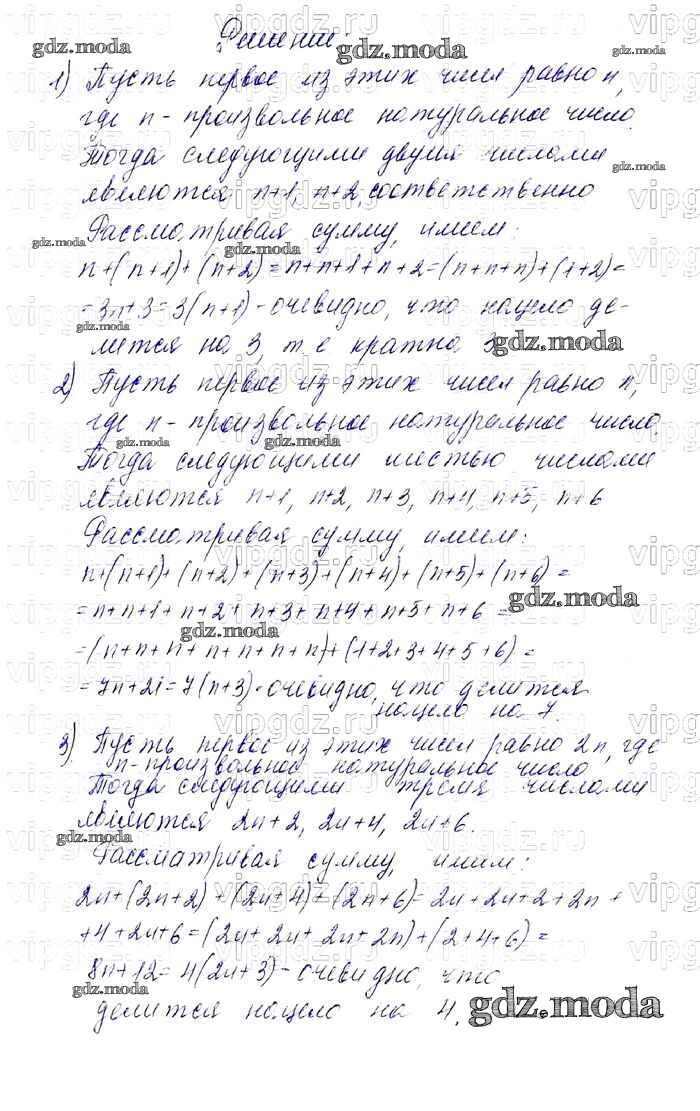 Решение
1) Пусть первое из этих чисел равно n,
где n - произвольное натуральное число
Тогда следующими двумя числами
являются n+1, n+2, соответственно
Рассматривая сумму, имеем:
n+(n+1)+(n+2)=n+n+1+n+2=(n+n+n)+(1+2)=
=3n+3=3(n+1)-очевидно, что нацело де-
лится на 3, т.е кратна 3.
2) Пусть первое из этих чисел равно n,
где n - произвольное натуральное число.
Тогда следующими шестью числами
являются n+1, n+2, n+3, n+4, n+5, n+6
Рассматривая сумму, имеем:
n+(n+1)+(n+2)+(n+3)+(n+4)+(n+5)+(n+6)=
=n+n+1+n+2+n+3+n+4+n+5+n+6=
=(n+n+n+n+n+n+n)+(1+2+3+4+5+6)=
=7n+21=7(n+3)-очевидно, что делится
нацело на 7.
3) Пусть первое из этих чисел равно 2n, где
n-произвольное натуральное число
Тогда следующими тремя числами
являются 2n+2, 2n+4, 2n+6.
Рассматривая сумму, имеем:
2n+(2n+2)+(2n+4)+(2n+6)=2n+2n+2+2n+
+4+2n+6=(2n+2n+2n+2n)+(2+4+6)=
8n+12=4(2n+3)-очевидно, что
делится нацело на 4.
gdz.moda
vipgdz.ru